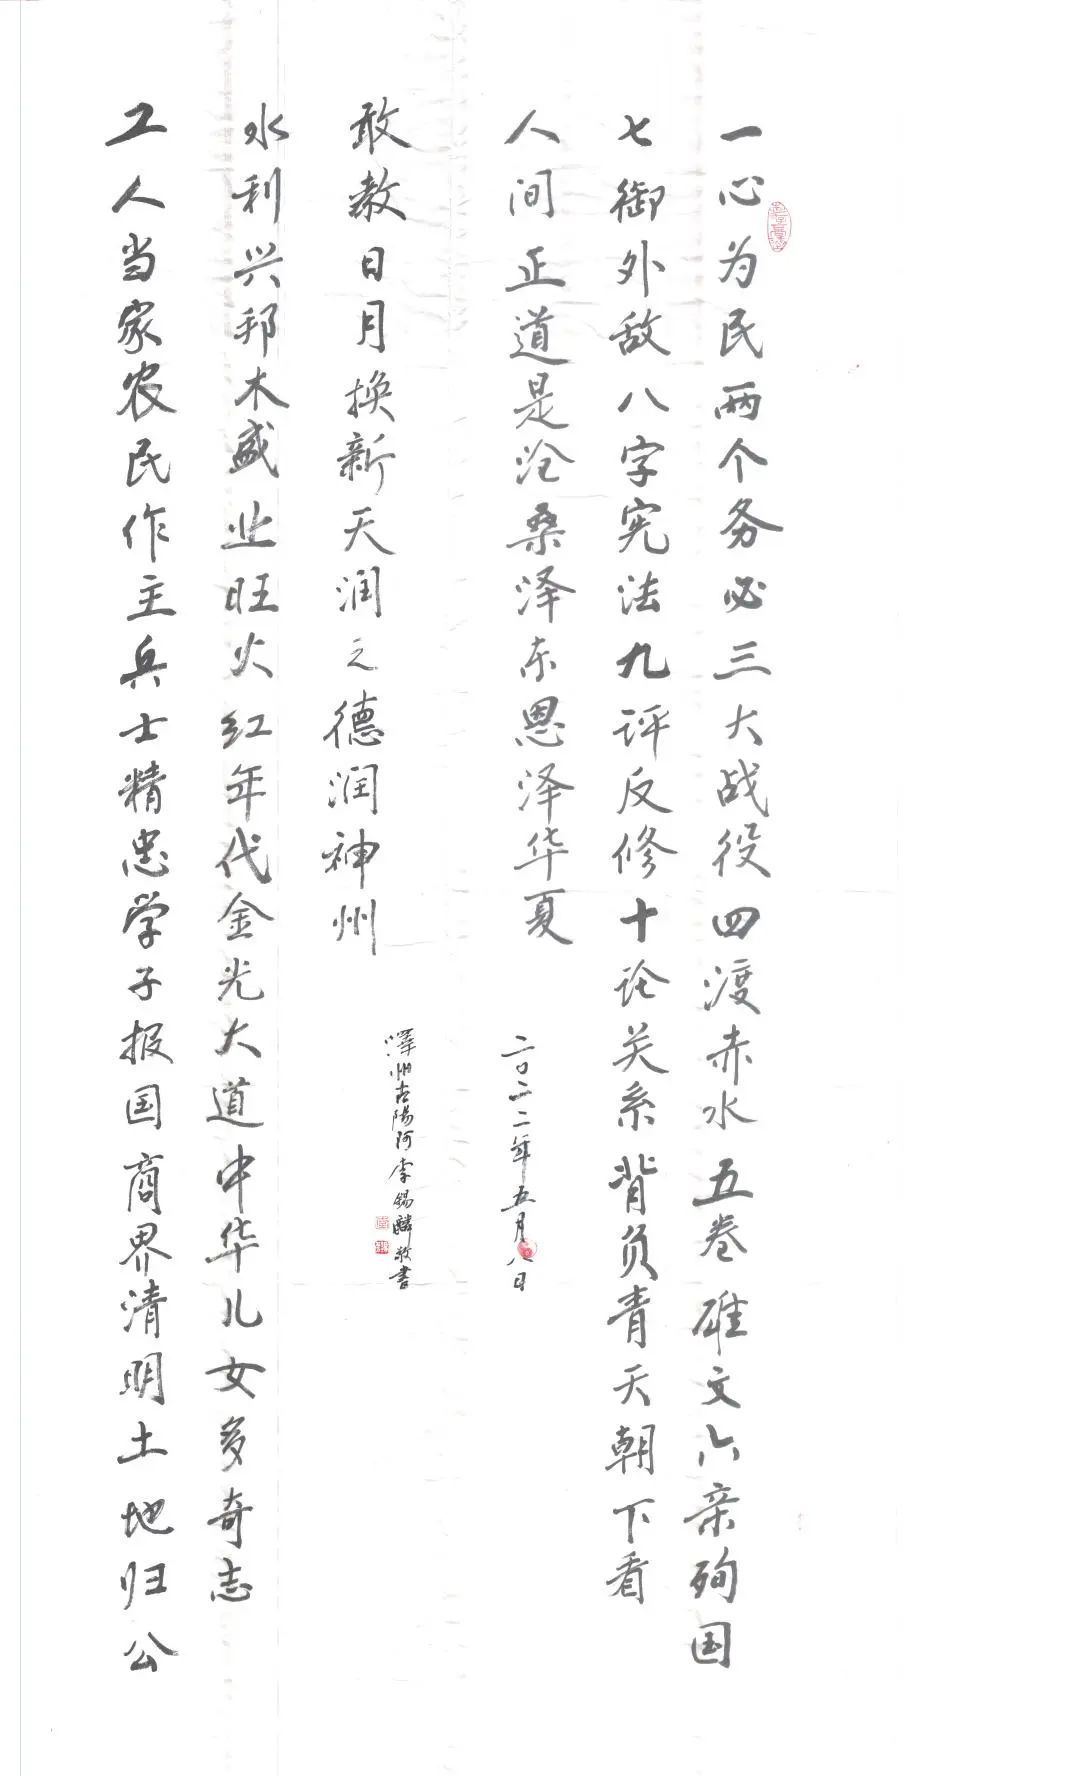 一心为民两个务必三大战役四渡赤水五卷雄文六亲殉国
七御外敌八字宪法九评反修十论关系背负青天朝下看
人间正道是沧桑泽东恩泽华夏
二〇二二年五月八日
工人当家农民作主兵士精忠学子报国商界清明土地归公
水利兴邦木盛业旺火红年代金光大道中华儿女多奇志
敢教日月换新天润之德润神州
澤州古陽阿李錫麟敬書